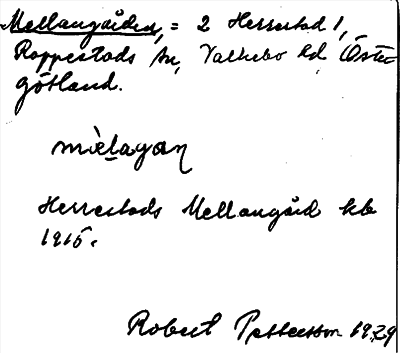 Mellangården, = 2 Herrestad 1,
Roppestads sn, Valkebo hd, Öster-
götland.
mèlagan
Herrestads Mellangård kb
1915.
Robert Pettersson 1929